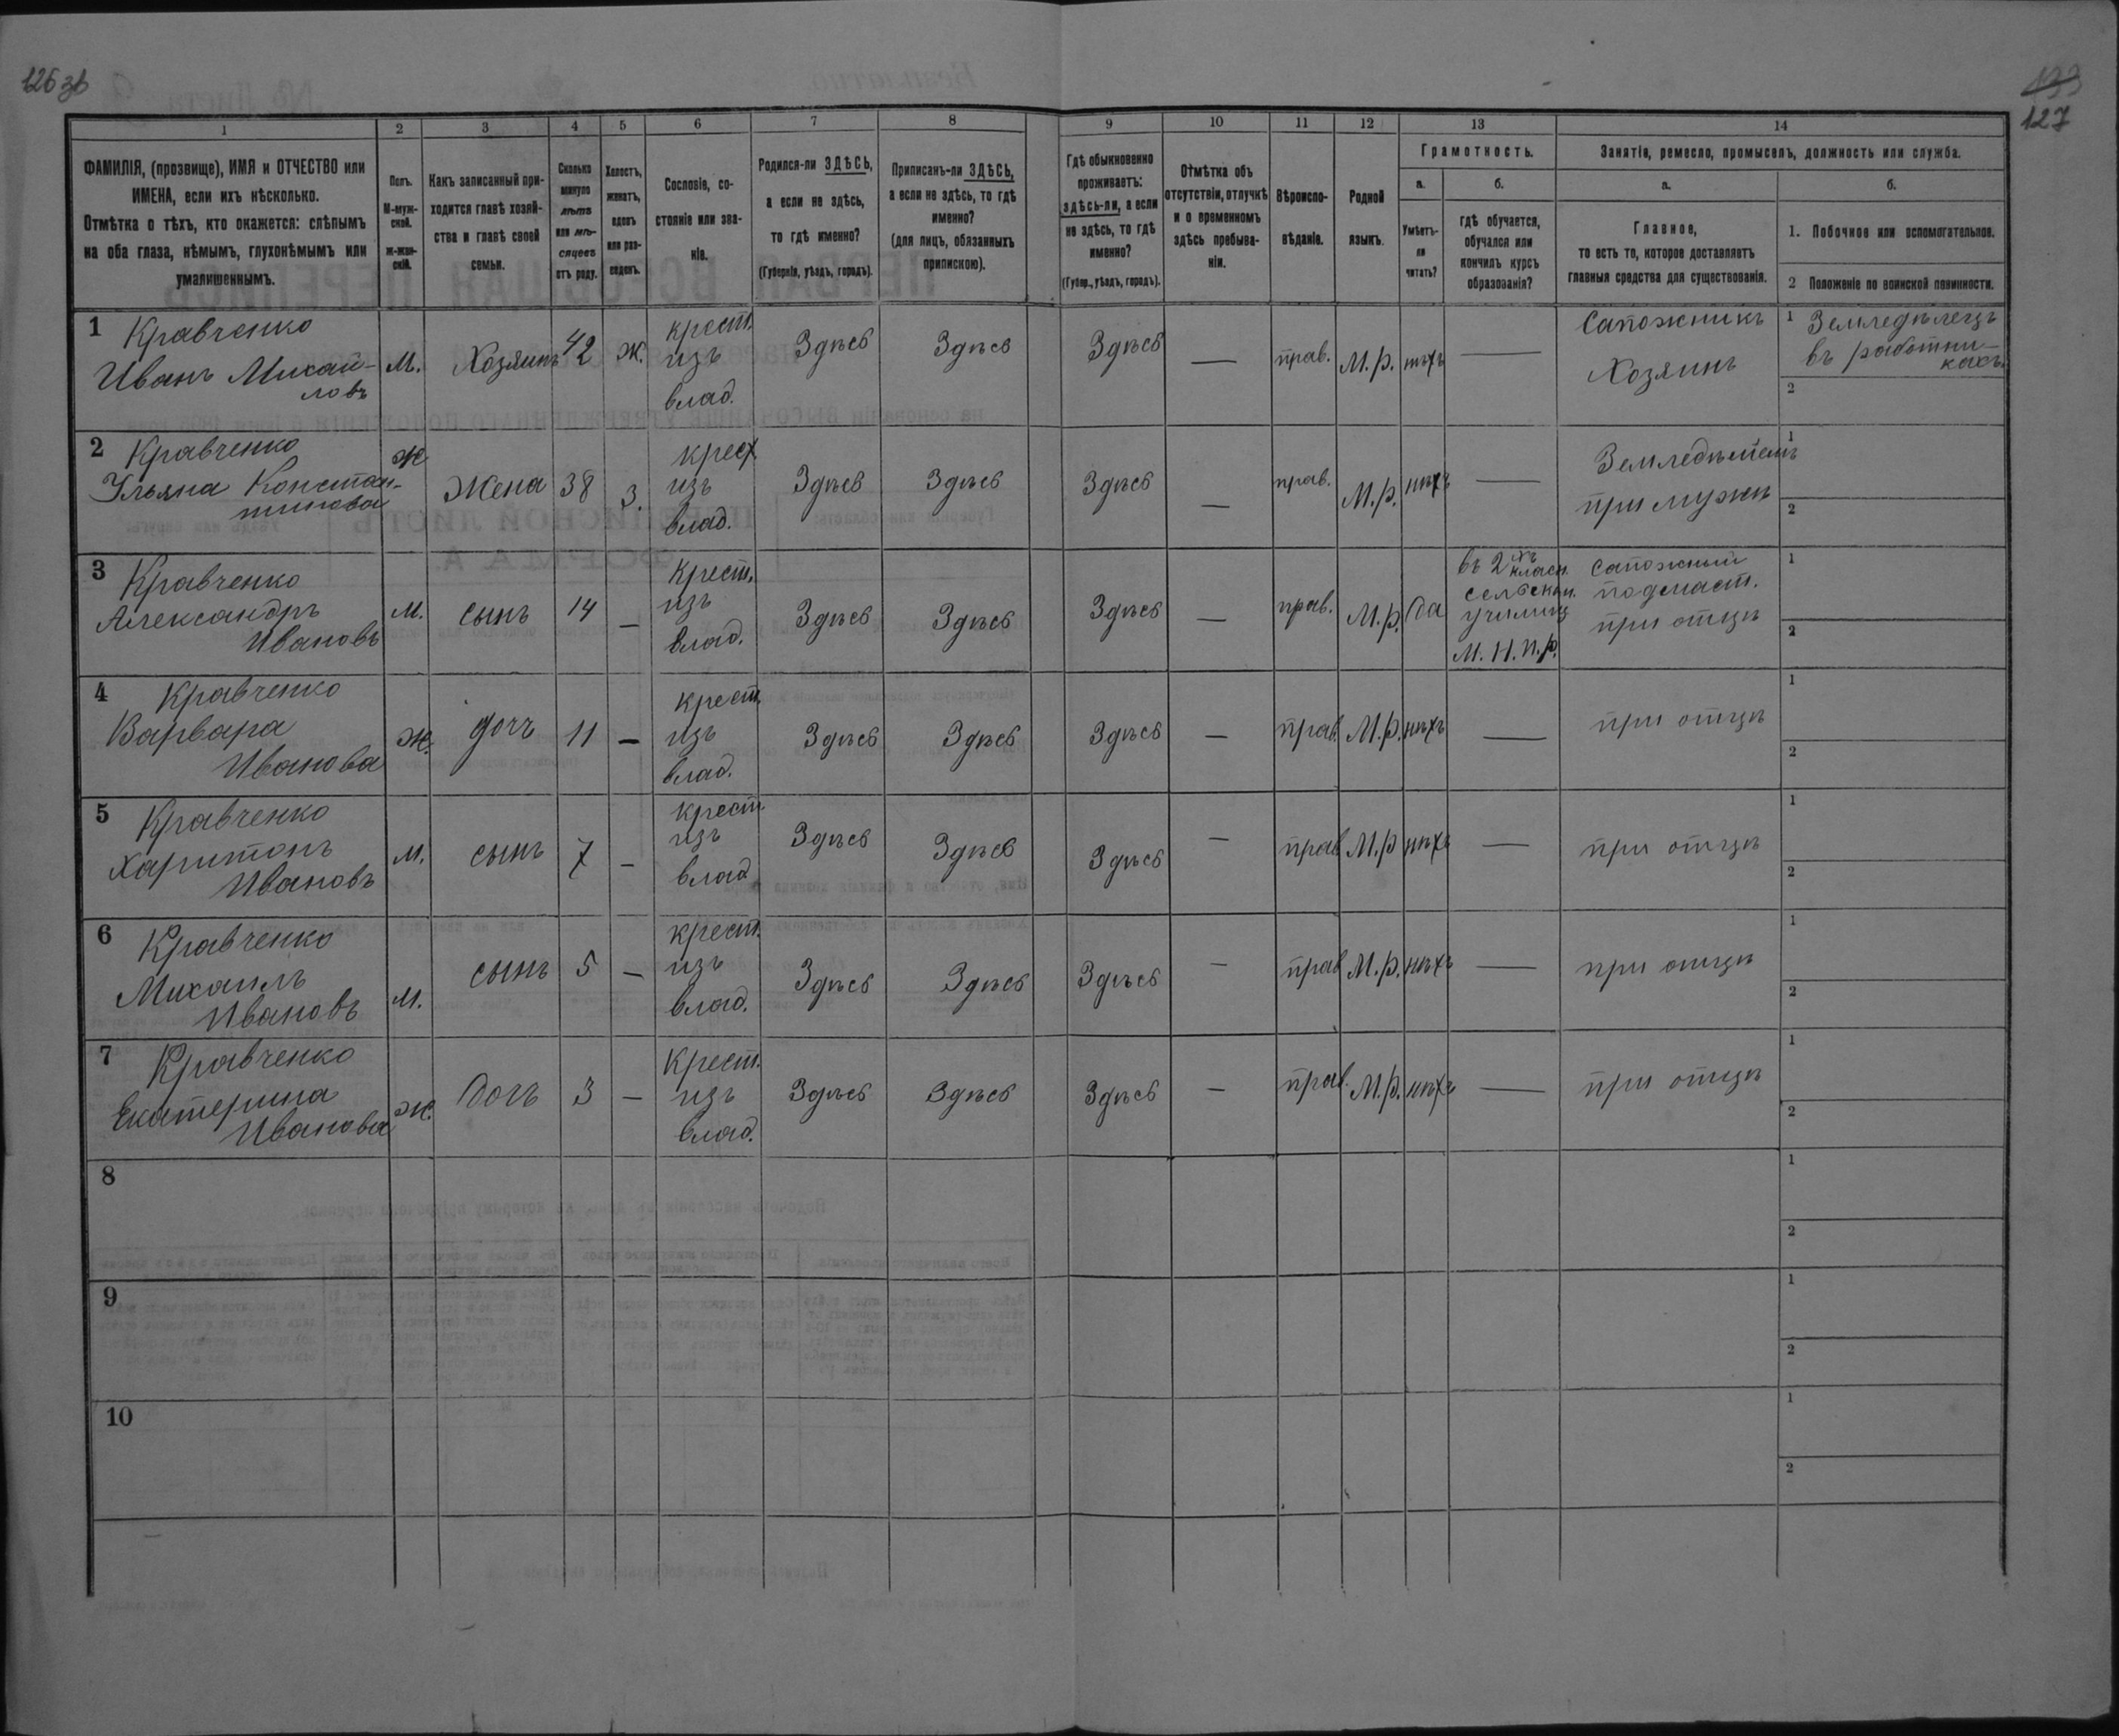 126 зв
133
127
1 2 3 4 5 6 7 8 9 10 11 12 13 14
ФАМИЛІЯ, (прозвище), ИМЯ и ОТЧЕСТВО или
ИМЕНА, если ихъ нѣсколько.
Отмѣтка о тѣхъ, кто окажется: слѣпымъ
на оба глаза, нѣмымъ, глухонѣмымъ или
умалишеннымъ.
Полъ.
М-муж-
ской.
Ж-жен-
скій.
Какъ записанный при-
ходится главѣ хозяй-
ства и главѣ своей
семьи.
Сколько
минуло
лѣтъ
или мѣ-
сяцевъ
отъ роду.
Холостъ,
женатъ,
вдовъ
или раз-
веденъ.
Сословіе, со-
стояніе или зва-
ніе.
Родился-ли ЗДѢСЬ,
а если не здѣсь,
то гдѣ именно?
(Губернія, уѣздъ, городъ).
Приписанъ-ли ЗДѢСЬ,
а если не здѣсь, то гдѣ
именно?
(для лицъ, обязанныхъ
припискою).
Гдѣ обыкновенно
проживаетъ:
здѣсь-ли, а если
не здѣсь, то гдѣ
именно?
(Губер., уѣздъ, городъ).
Отмѣтка объ
отсутствіи, отлучкѣ
и о временномъ
здѣсь пребыва-
ніи.
Вѣроиспо-
вѣданіе.
Родной
языкъ.
Грамотность.
а.
Умѣетъ-
ли
читать?
б.
гдѣ обучается,
обучался или
кончилъ курсъ
образованія?
Занятіе, ремесло, промыселъ, должность или служба.
а.
Главное,
то есть то, которое доставляетъ
главныя средства для существованія.
б.
1. Побочное или вспомогательное.
2 Положеніе по воинской повинности.
1 Кравченко
Иванъ Михай-
ловъ
М.
Хозяинъ
42
ж.
крест.
изъ
влад.
Здѣсь
Здѣсь
Здѣсь
—
прав.
М.р.
нѣтъ
—
Сапожникъ
Хозяинъ
1 Земледѣлецъ
въ работни-
кахъ.
2
2 Кравченко
Ульяна Констан-
тинова
Ж
Жена
38
З.
крест
изъ
влад.
Здѣсь
Здѣсь
Здѣсь
—
прав.
М.р.
нѣтъ
—
при мужѣ
1
2
3 Кравченко
Александръ
Ивановъ
М.
сынъ
14
—
Крест.
изъ
влад.
Здѣсь
Здѣсь
Здѣсь
—
прав.
М.р.
да
въ 2хъ класн.
сельском.
училищ
М.Н.Пр.
сапожный
подмаст.
при отцѣ
1
2
4 Кравченко
Варвара
Иванова
Ж.
дочь
11
—
крест.
изъ
влад.
Здѣсь
Здѣсь
Здѣсь
—
прав.
М.р.
нѣтъ
—
при отцѣ
1
2
5 Кравченко
Харитонъ
Ивановъ
М.
сынъ
7
—
крест
изъ
влад
Здѣсь
Здѣсь
Здѣсь
—
прав
М.р
нѣтъ
—
при отцѣ
1
2
6 Кравченко
Михаилъ
Ивановъ
М.
сынъ
5
—
крест.
изъ
влад.
Здѣсь
Здѣсь
Здѣсь
—
прав
М.р.
нѣтъ
—
при отцѣ
1
2
7 Кравченко
Екатерина
Иванова
Ж.
дочь
3
—
Крест.
изъ
влад.
Здѣсь
Здѣсь
Здѣсь
—
прав.
М.р.
нѣтъ
—
при отцѣ
1
2
8
1
2
9
1
2
10
1
2